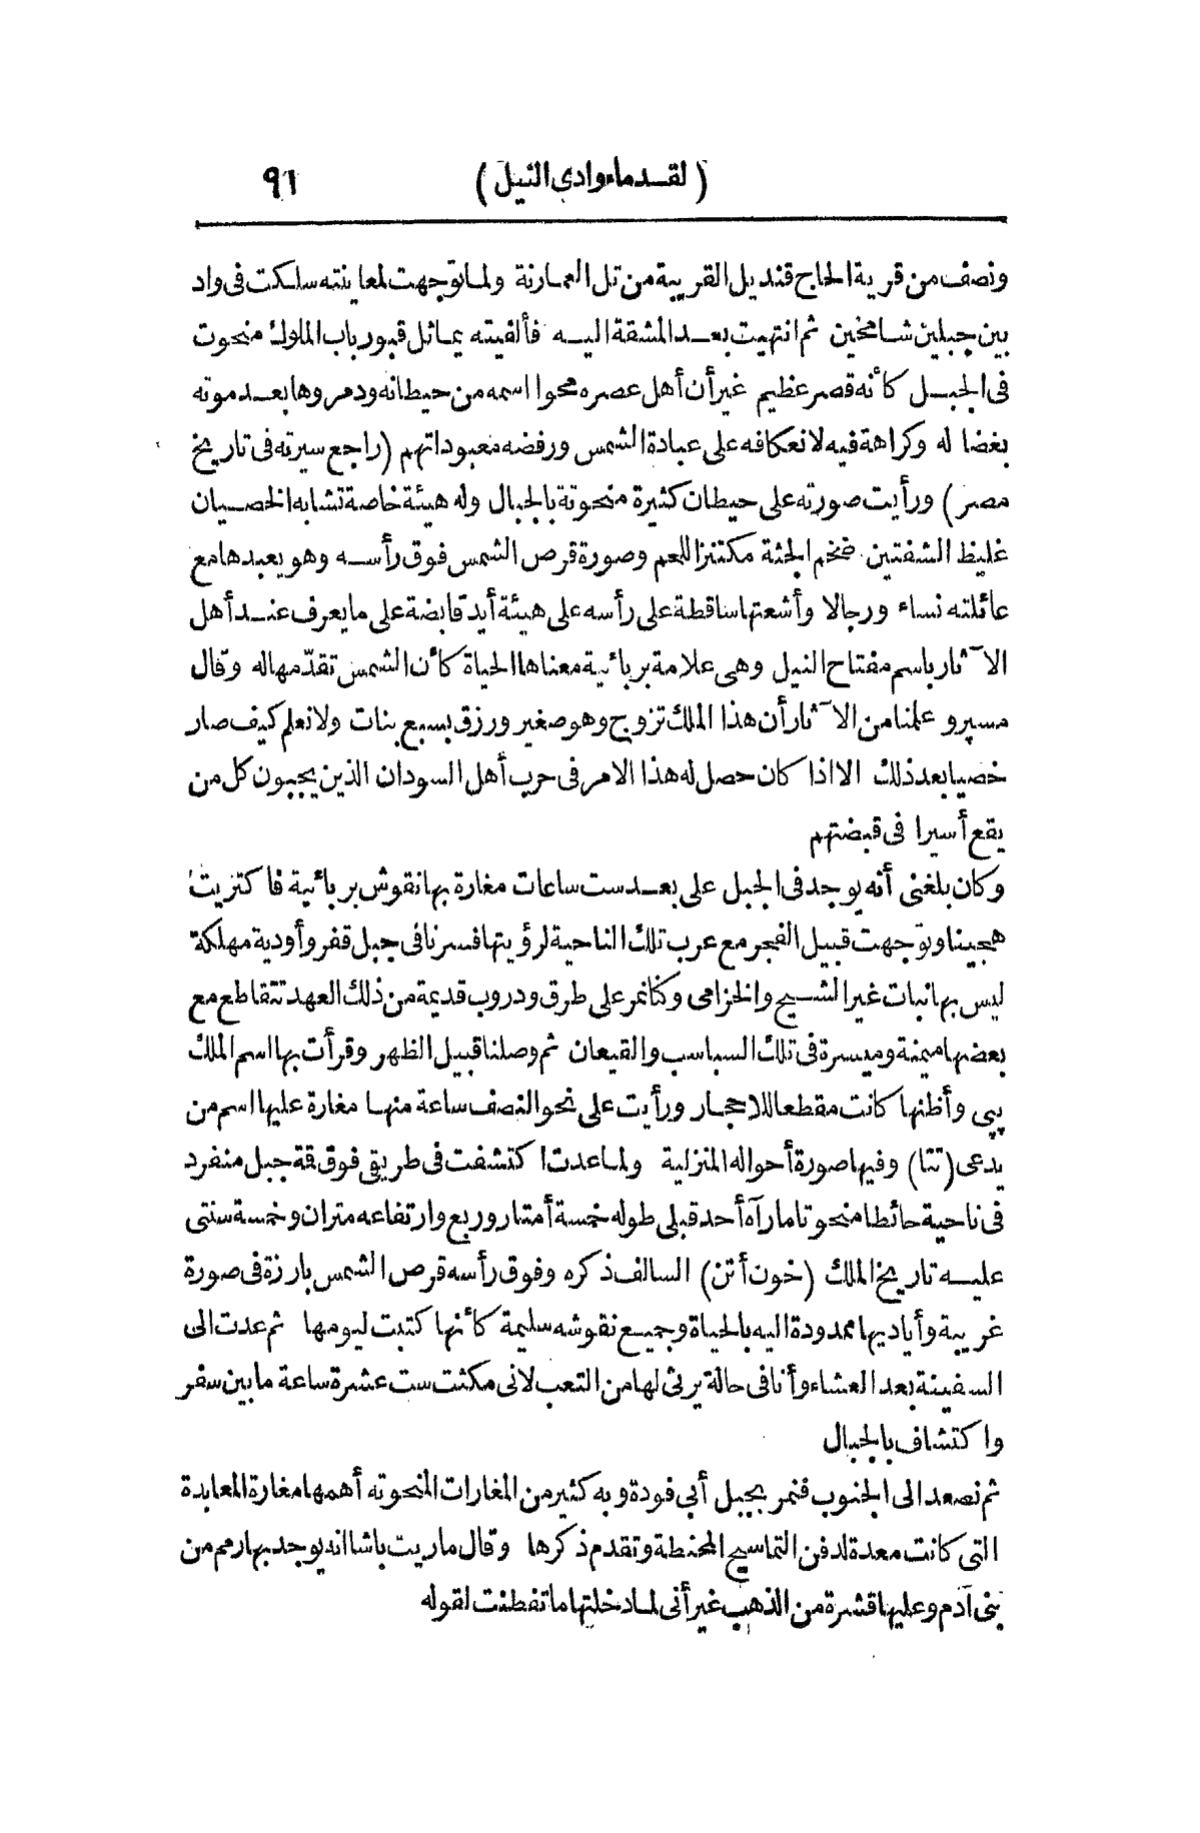 (لقدماء وادي النيل) ٩١
ونصف من قرية الحاج قنديل القريبة من تل العمارنة ولما توّجهت لمعاينته سلكت في واد
بين جبلين شامخين ثم انتهيت بعد المشقة اليه فألفيته يماثل قبور باب الملوك منحوت
في الجبل كأنه قصر عظيم غير أن أهل عصره محوا اسمه من حيطانه ودمروها بعد موته
بغضا له وكراهة فيه لانعكافه على عبادة الشمس ورفضه معبوداتهم (راجع سيرته في تاريخ
مصر) ورأيت صورته على حيطان كثيرة منحوتة بالجبال وله هيئة خاصة تشابه الخصيان
غليظ الشفتين ضخم الجثة مكتنز اللحم وصورة قرص الشمس فوق رأسه وهو يعبدها مع
عائلته نساء ورجالا وأشعتها ساقطة على رأسه على هيئة أيد قابضة على ما يعرف عند أهل
الآثار باسم مفتاح النيل وهي علامة بربائية معناها الحياة كأن الشمس تقدّمها له وقال
مسپرو علمنا من الآثار أن هذا الملك تزوج وهو صغير ورزق بسبع بنات ولا نعلم كيف صار
خصيا بعد ذلك الا اذا كان حصل له هذا الامر في حرب أهل السودان الذين يجببون كل من
يقع أسيرا في قبضتهم
وكان بلغني أنه يوجد في الجبل على بعد ست ساعات مغارة بها نقوش بربائية فاكتريت
هجينا وتوّجهت قبيل الفجر مع عرب تلك الناحية لرؤيتها فسرنا في جبل قفر وأودية مهلكة
ليس بها نبات غير الشيح والخزامى وكنا نمر على طرق ودروب قديمة من ذلك العهد تتقاطع مع
بعضها ميمنة وميسرة في تلك السباسب والقيعان ثم وصلنا قبيل الظهر وقرأت بها اسم الملك
پپي وأظنها كانت مقطعا للاحجار ورأيت على نحو النصف ساعة منها مغارة عليها اسم من
يدعى (تتا) وفيها صورة أحواله المنزلية ولما عدت اكتشفت في طريقي فوق قة جبل منفرد
في ناحية حائطا منحوتا ما رآه أحد قبلي طوله خمسة أمتار وربع وارتفاعه متران وخمسة سنتي
عليه تاريخ الملك (خون أتن) السالف ذكره وفوق رأسه قرص الشمس بارزة في صورة
غريبة وأياديها ممدودة اليه بالحياة وجميع نقوشه سليمة كأنها كتبت ليومها ثم عدت الى
السفينة بعد العشاء وأنا في حالة يرثى لها من التعب لاني مكثت ست عشرة ساعة ما بين سفر
واكتشاف بالجبال
ثم نصعد الى الجنوب فنمر بجبل أبي فودة وبه كثير من المغارات المنحوته أهمها مغارة المعابدة
التي كانت معدة لدفن التماسيح المحنطة وتقدم ذكرها وقال ماريت باشا انه يوجد بها رمم من
بني آدم وعليها قشرة من الذهب غير أني لما دخلتها ما تفطنت لقوله